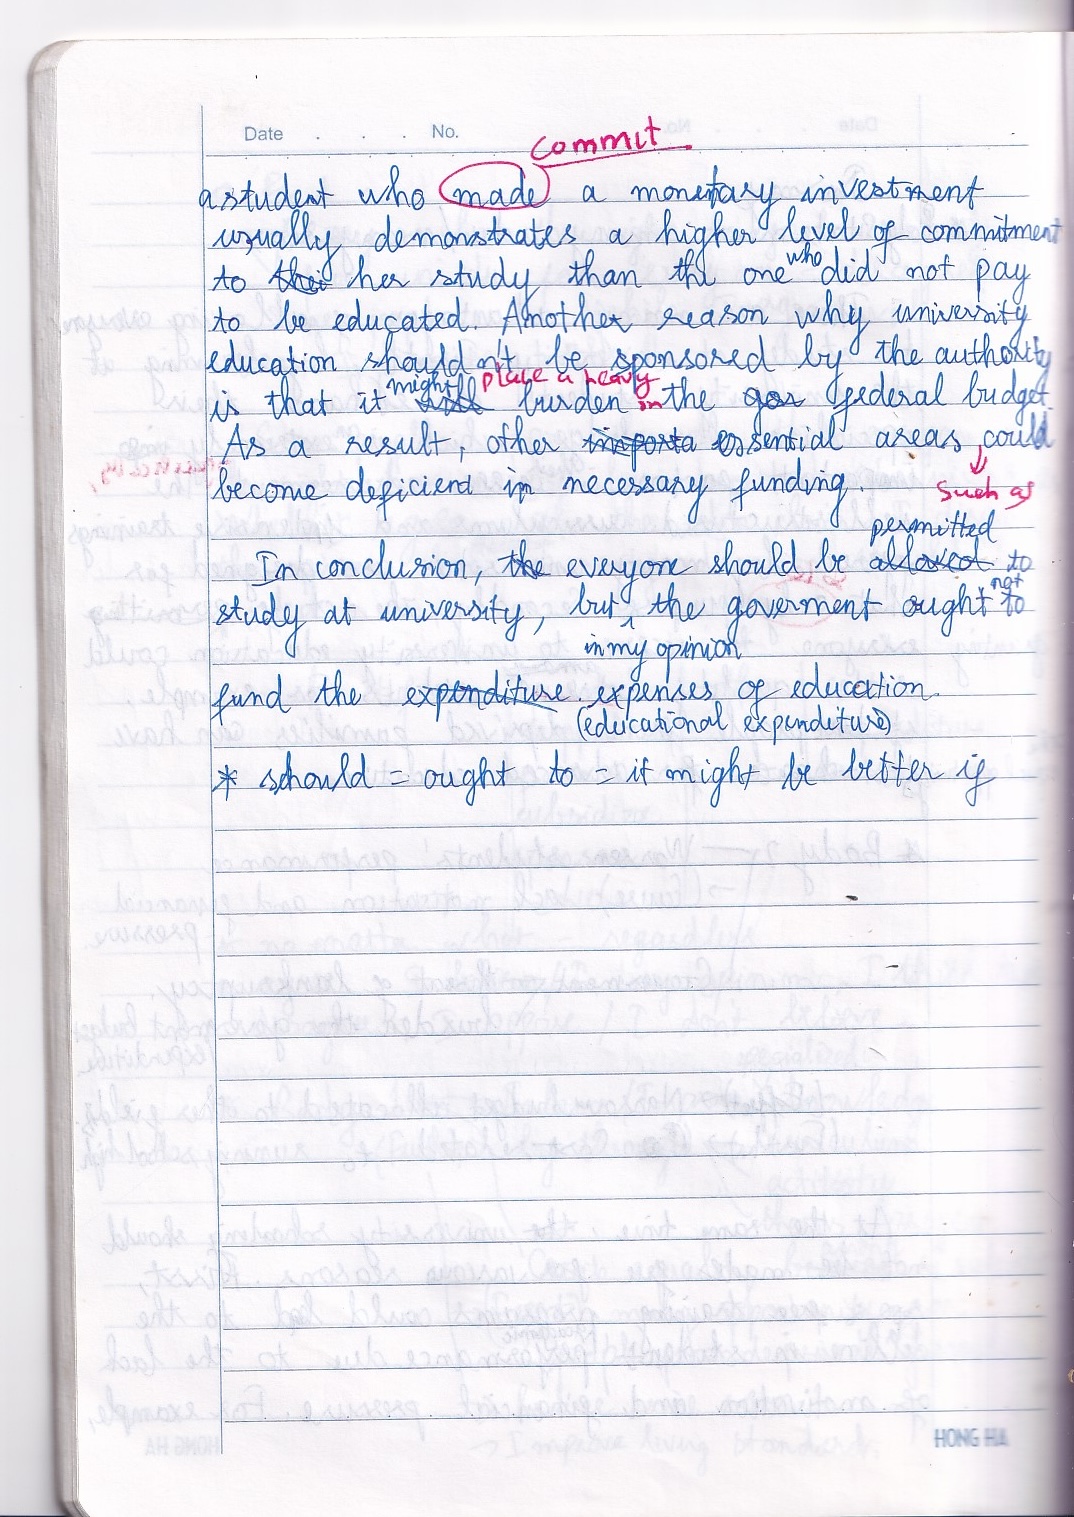 Date . . . No.
commit
a student who made a monetary investment
usually demonstrates a higher level of commitment
to their her study than the one who did not pay
to be educated. Another reason why university
education shouldn't be sponsored by the authority
might place a heavy
is that it will burden in the gov federal budget.
As a result, other importa essential areas could
become deficient in necessary funding.
such as
permitted
In conclusion, the everyone should be allowed to
not
study at university, but the goverment ought to
in my opinion
fund the expenditure expenses of education.
(educational expenditure)
* should = ought to = it might be better if
HONG HA